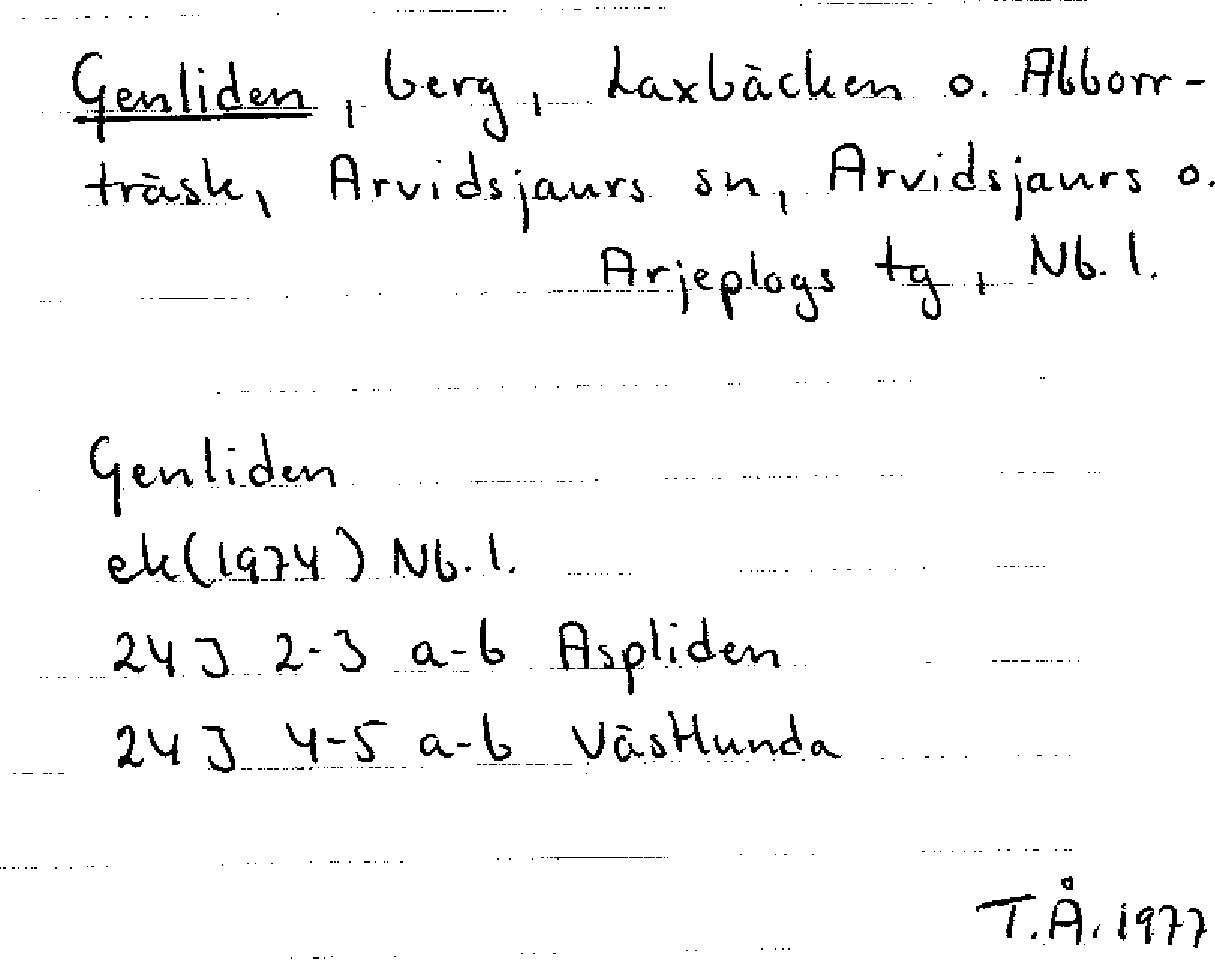 Genliden, berg, Laxbäcken o. Abborr-
träsk, Arvidsjaurs sn, Arvidsjaurs o.
Arjeplogs tg, Nb. l.
Genliden
ek (1974) Nb. l.
24 J 2-3 a-b Aspliden
24 J 4-5 a-b Västlunda
T.Å. 1977